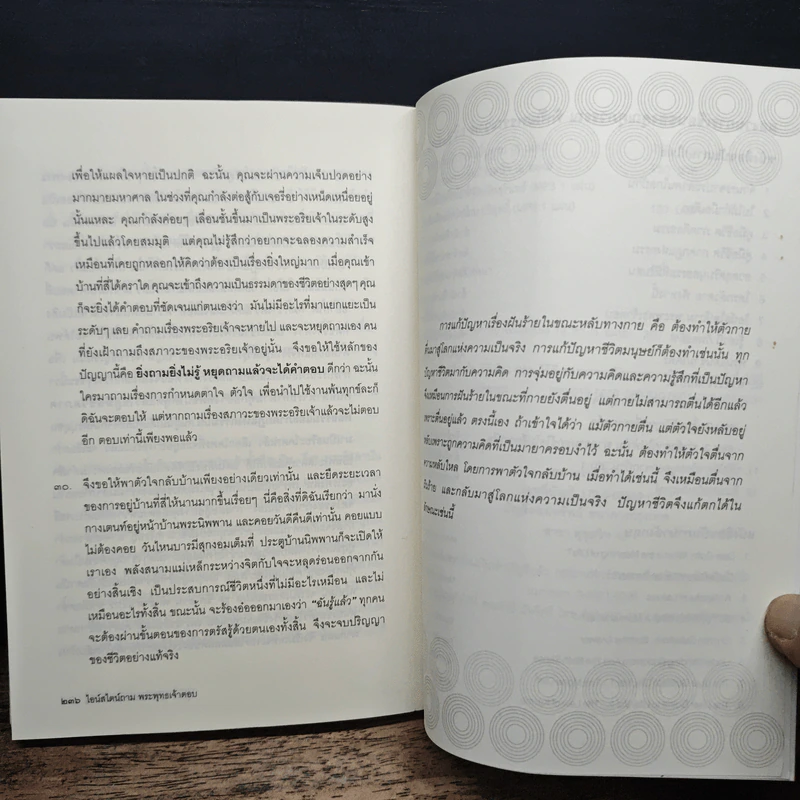 เพื่อให้แผลใจหายเป็นปกติ ฉะนั้น คุณจะผ่านความเจ็บปวดอย่าง
มากมายมหาศาล ในช่วงที่คุณกำลังต่อสู้กับเจอรี่อย่างเหน็ดเหนื่อยอยู่
นั้นแหละ คุณกำลังค่อยๆ เลื่อนชั้นขึ้นมาเป็นพระอริยเจ้าในระดับสูง
ขึ้นไปแล้วโดยสมมุติ แต่คุณไม่รู้สึกว่าอยากจะฉลองความสำเร็จ
เหมือนที่เคยถูกหลอกให้คิดว่าต้องเป็นเรื่องยิ่งใหญ่มาก เมื่อคุณเข้า
บ้านที่สี่ได้คราใด คุณจะเข้าถึงความเป็นธรรมดาของชีวิตอย่างสุดๆ คุณ
ก็จะยิ่งได้คำตอบที่ชัดเจนแก่ตนเองว่า มันไม่มีอะไรที่มาแยกแยะเป็น
ระดับๆ เลย คำถามเรื่องพระอริยเจ้าจะหายไป และจะหยุดถามเอง คน
ที่ยังเฝ้าถามถึงสภาวะของพระอริยเจ้าอยู่นั้น จึงขอให้ใช้หลักของ
ปัญญานี้คือ ยิ่งถามยิ่งไม่รู้ หยุดถามแล้วจะได้คำตอบ ดีกว่า ฉะนั้น
ใครมาถามเรื่องการกำหนดตาใจ ตัวใจ เพื่อนำไปใช้งานพ้นทุกข์ละก็
ดิฉันจะตอบให้ แต่หากถามเรื่องสภาวะของพระอริยเจ้าแล้วจะไม่ตอบ
อีก ตอบเท่านี้เพียงพอแล้ว
๓๐. จึงขอให้พาตัวใจกลับบ้านเพียงอย่างเดียวเท่านั้น และยืดระยะเวลา
ของการอยู่บ้านที่สี่ให้นานมากขึ้นเรื่อยๆ นี่คือสิ่งที่ดิฉันเรียกว่า มานั่ง
กางเตนท์อยู่หน้าบ้านพระนิพพาน และคอยวันดีคืนดีเท่านั้น คอยแบบ
ไม่ต้องคอย วันไหนบารมีสุกงอมเต็มที่ ประตูบ้านนิพพานก็จะเปิดให้
เราเอง พลังสนามแม่เหล็กระหว่างจิตกับใจจะหลุดร่อนออกจากกัน
อย่างสิ้นเชิง เป็นประสบการณ์ชีวิตหนึ่งที่ไม่มีอะไรเหมือน และไม่
เหมือนอะไรทั้งสิ้น ขณะนั้น จะร้องอ๋อออกมาเองว่า “ฉันรู้แล้ว” ทุกคน
จะต้องผ่านขั้นตอนของการตรัสรู้ด้วยตนเองทั้งสิ้น จึงจะจบปริญญา
ของชีวิตอย่างแท้จริง
๒๓๖ ไอน์สไตน์ถาม พระพุทธเจ้าตอบ
การแก้ปัญหาเรื่องฝันร้ายในขณะหลับทางกาย คือ ต้องทำให้ตัวกาย
ตื่นมาสู่โลกแห่งความเป็นจริง การแก้ปัญหาชีวิตมนุษย์ก็ต้องทำเช่นนั้น ทุก
ปัญหาชีวิตมากับความคิด การจุ่มอยู่กับความคิดและความรู้สึกที่เป็นปัญหา
จึงเหมือนการฝันร้ายในขณะที่กายยังตื่นอยู่ แต่กายไม่สามารถตื่นได้อีกแล้ว
เพราะตื่นอยู่แล้ว ตรงนี้เอง ถ้าเข้าใจได้ว่า แม้ตัวกายตื่น แต่ตัวใจยังหลับอยู่
หลับเพราะถูกความคิดที่เป็นมายาครอบงำไว้ ฉะนั้น ต้องทำให้ตัวใจตื่นจาก
ความหลับไหล โดยการพาตัวใจกลับบ้าน เมื่อทำได้เช่นนี้ จึงเหมือนตื่นจาก
ฝันร้าย และกลับมาสู่โลกแห่งความเป็นจริง ปัญหาชีวิตจึงแก้ตกได้ใน
ลักษณะเช่นนี้